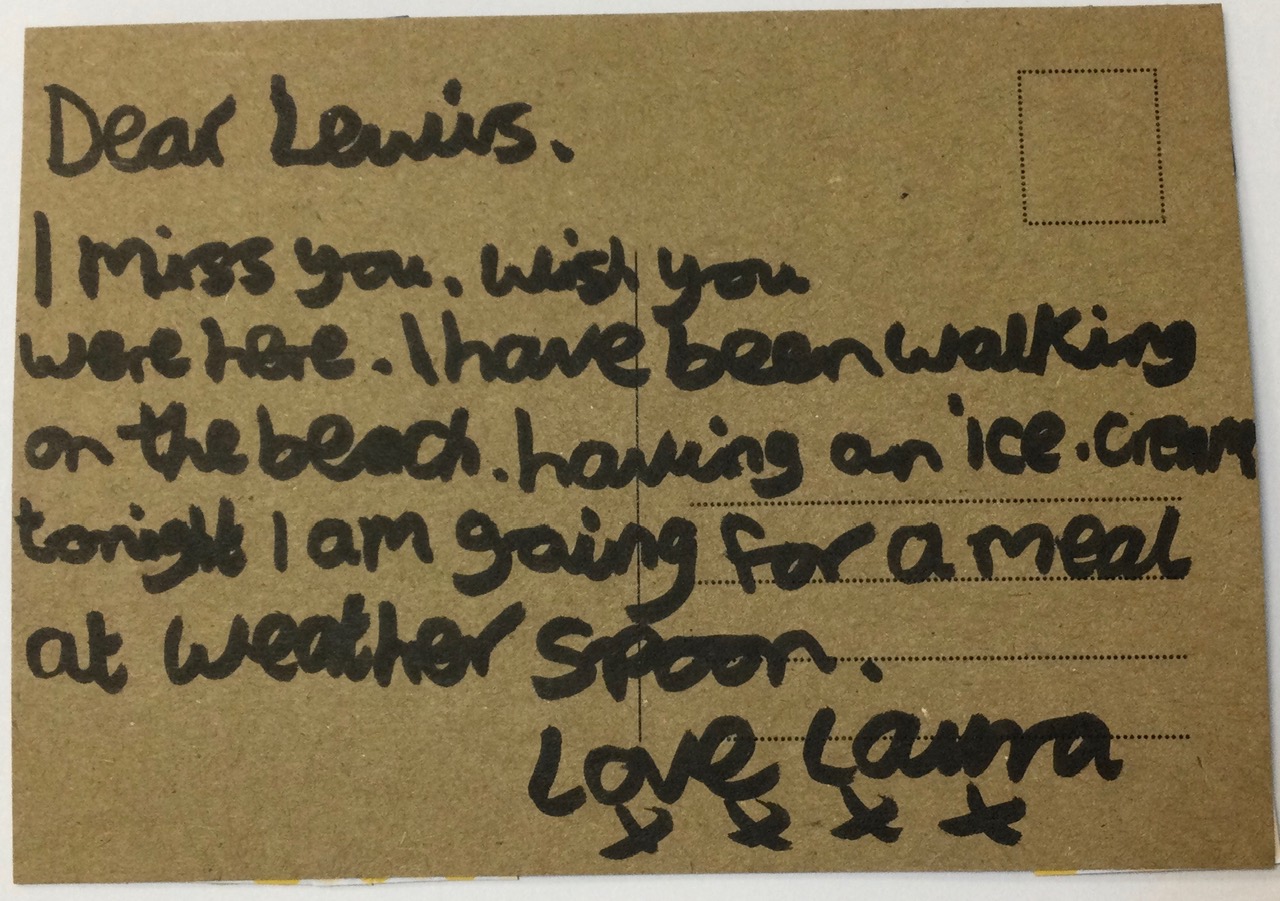 Dear Lewis.
I miss you. wish you
were here. I have been walking
on the beach. having an ice. cream
tonight I am going for a meal
at weather Spoon.
Love Laura
x x x x